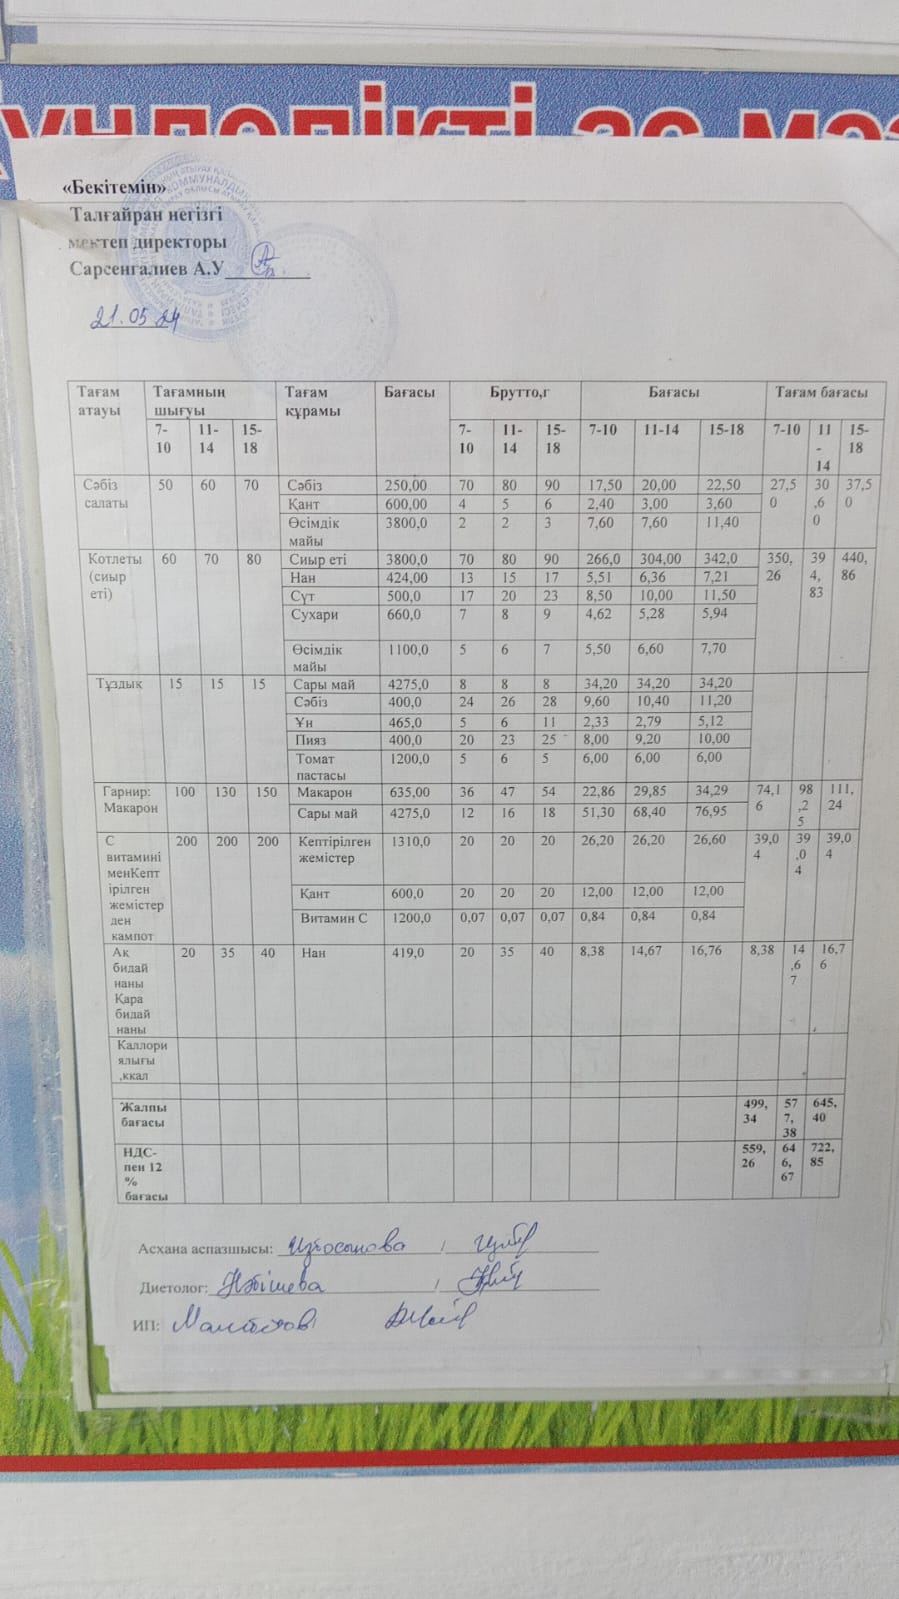 «Бекітемін»
Талғайран негізгі
мектеп директоры
Сарсенгалиев А.У
21.05 24
Тағам атауы Тағамның шығуы Тағам құрамы Бағасы Брутто,г Бағасы Тағам бағасы
7-10 11-14 15-18 7-10 11-14 15-18 7-10 11-14 15-18 7-10 11-14 15-18
Сәбіз салаты 50 60 70 Сәбіз 250,00 70 80 90 17,50 20,00 22,50 27,50 30,60 37,50
Қант 600,00 4 5 6 2,40 3,00 3,60
Өсімдік майы 3800,0 2 2 3 7,60 7,60 11,40
Котлеты (сиыр еті) 60 70 80 Сиыр еті 3800,0 70 80 90 266,0 304,00 342,0 350,26 394,83 440,86
Нан 424,00 13 15 17 5,51 6,36 7,21
Сүт 500,0 17 20 23 8,50 10,00 11,50
Сухари 660,0 7 8 9 4,62 5,28 5,94
Өсімдік майы 1100,0 5 6 7 5,50 6,60 7,70
Тұздық 15 15 15 Сары май 4275,0 8 8 8 34,20 34,20 34,20
Сәбіз 400,0 24 26 28 9,60 10,40 11,20
Ұн 465,0 5 6 11 2,33 2,79 5,12
Пияз 400,0 20 23 25 8,00 9,20 10,00
Томат пастасы 1200,0 5 6 5 6,00 6,00 6,00
Гарнир: Макарон 100 130 150 Макарон 635,00 36 47 54 22,86 29,85 34,29 74,16 98,25 111,24
Сары май 4275,0 12 16 18 51,30 68,40 76,95
С витамині менКептірілген жемістерден кампот 200 200 200 Кептірілген жемістер 1310,0 20 20 20 26,20 26,20 26,60 39,04 39,04 39,04
Қант 600,0 20 20 20 12,00 12,00 12,00
Витамин С 1200,0 0,07 0,07 0,07 0,84 0,84 0,84
Ақ бидай наны Қара бидай наны 20 35 40 Нан 419,0 20 35 40 8,38 14,67 16,76 8,38 14,67 16,76
Каллориялығы,ккал
Жалпы бағасы 499,34 577,38 645,40
НДС-пен 12 % бағасы 559,26 646,67 722,85
Асхана аспазшысы:
Диетолог:
ИП: